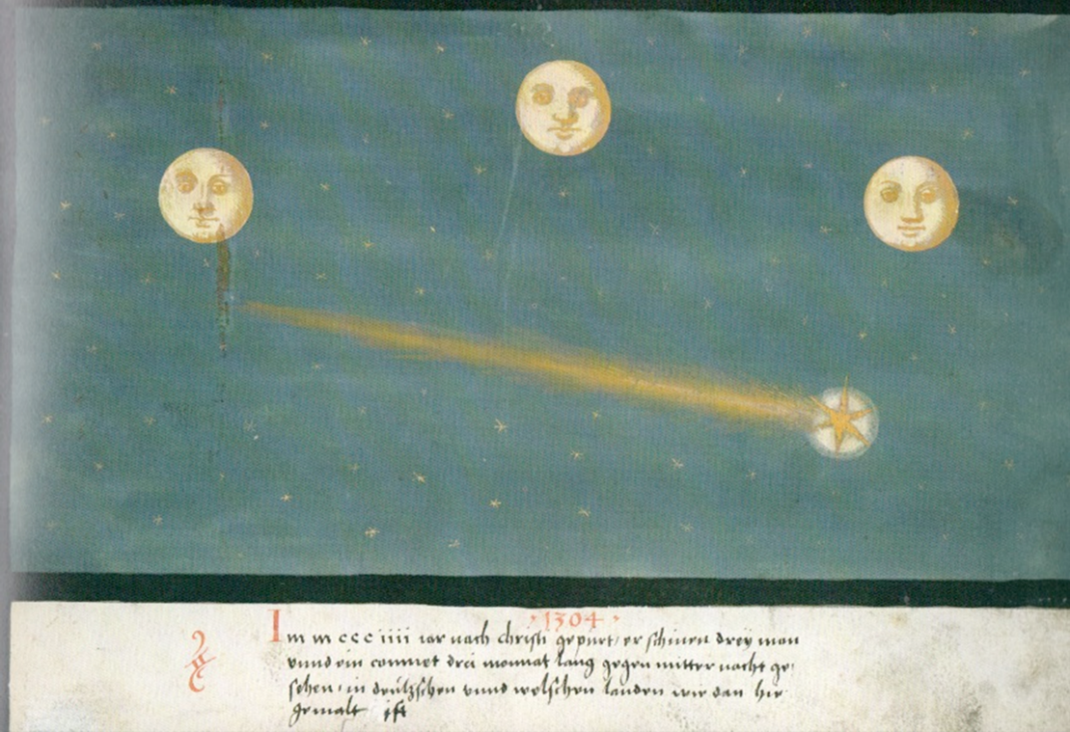 ·1304·
Im m ccc iiii iar nach christi gepurt, er schinen drey mon
vnnd ein commet drei monnat lang gegen mitter nacht ge,
sehen, in deützschen vnnd welschen landen wie dan hie
gemalt ist